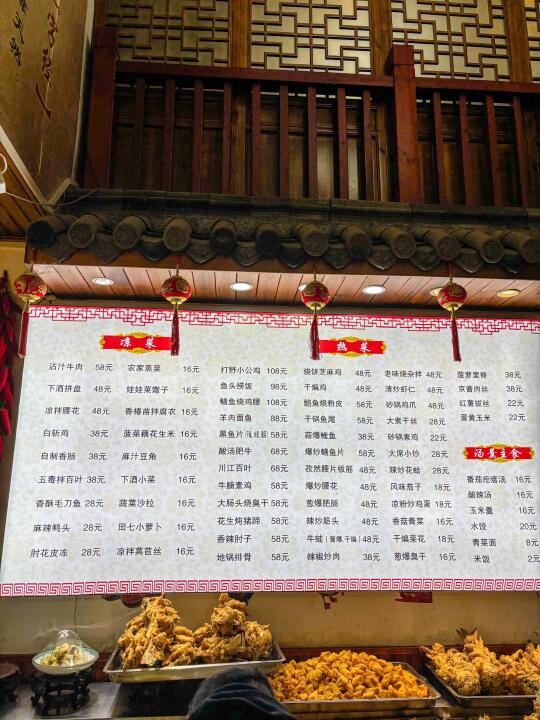 凉菜
沾汁牛肉 58元
下酒拼盘 48元
凉拌腰花 48元
白斩鸡 38元
自制香肠 38元
五毒拌百叶 38元
香酥毛刀鱼 28元
麻辣鸭头 28元
肘花皮冻 28元
农家蒸菜 16元
娃娃菜馓子 16元
香椿苗拌腐衣 16元
菠菜藕花生米 16元
麻汁豆角 16元
下酒小菜 16元
蔬菜沙拉 16元
田七小萝卜 16元
凉拌莴苣丝 16元
热菜
打野小公鸡 108元
鱼头捞饭 98元
鳝鱼烧鸡腰 108元
羊肉面鱼 88元
黑鱼片 58元
酸汤肥牛 68元
川江百叶 68元
牛腩素鸡 58元
大肠头烧臭干 58元
花生炖猪蹄 58元
香辣肘子 58元
地锅排骨 58元
烧饼芝麻鸡 48元
干煸鸡 48元
鲳鱼烧粉皮 58元
干锅鱼尾 58元
蒜爆鳝鱼 38元
爆炒鳝鱼片 58元
孜然腰片钣筋 48元
爆炒腰花 48元
葱爆肥肠 48元
辣炒筋头 48元
牛蛙(酱爆、干煸) 48元
辣椒炒肉 38元
老味烧杂拌 48元
清炒虾仁 48元
砂锅鸡爪 48元
大煮干丝 28元
砂锅素鸡 22元
大席小炒 28元
辣炒花蛤 28元
风味茄子 18元
凉粉炒鸡蛋 18元
香菇青菜 16元
干煸菜花 18元
葱爆臭干 16元
菠萝里脊 38元
京酱肉丝 38元
红薯拔丝 22元
蛋黄玉米 22元
汤羹主食
番茄疙瘩汤 16元
酸辣汤 16元
玉米羹 16元
水饺 20元
青菜面 8元
米饭 2元